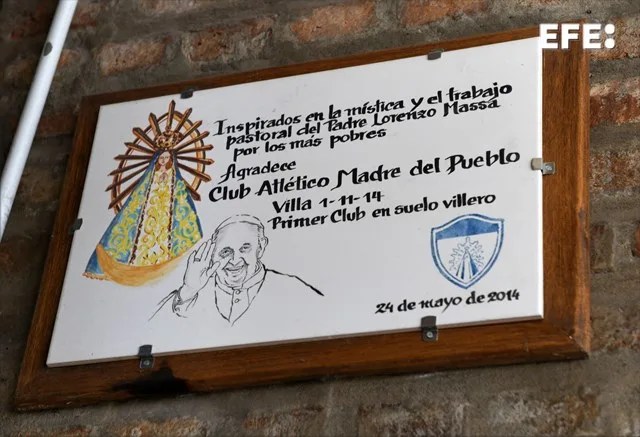 EFE:
Inspirados en la mística y el trabajo
pastoral del Padre Lorenzo Massa
por los más pobres
Agradece
Club Atlético Madre del Pueblo
Villa 1-11-14
Primer Club en suelo villero
24 de mayo de 2014